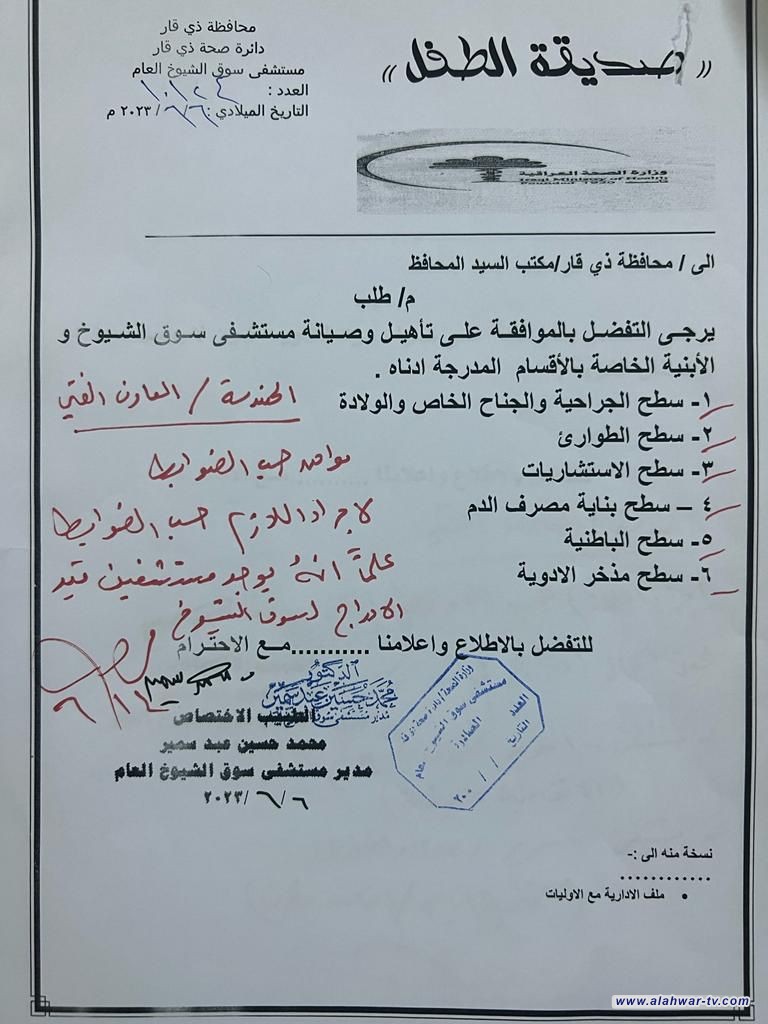 محافظة ذي قار
دائرة صحة ذي قار
مستشفى سوق الشيوخ العام
العدد : ١٠١٢٤
التاريخ الميلادي : ٦/٦ / ٢٠٢٣ م
(( صديقة الطفل ))
وزارة الصحة العراقية
Iraqi Ministry of Health
الى / محافظة ذي قار/مكتب السيد المحافظ
م/ طلب
يرجى التفضل بالموافقة على تأهيل وصيانة مستشفى سوق الشيوخ و
الأبنية الخاصة بالأقسام المدرجة ادناه .
١- سطح الجراحية والجناح الخاص والولادة
٢- سطح الطوارئ
٣- سطح الاستشاريات
٤ – سطح بناية مصرف الدم
٥- سطح الباطنية
٦- سطح مذخر الادوية
الهندسة / المعاون الفني
موافق حسب الضوابط
لاجراء اللازم حسب الضوابط
علماً انهُ يوجد مستشفين قيد
الادراج لسوق الشيوخ
للتفضل بالاطلاع واعلامنا ...........مع الاحترام
٦/١٢
الدكتور
محمد حسين عبد سمير
الطبيب الاختصاص
محمد حسين عبد سمير
مدير مستشفى سوق الشيوخ العام
٦/ ٦ /٢٠٢٣
مستشفى سوق الشيوخ العام
العدد
الصادرة
التاريخ / / ٢٠٠
نسخة منه الى :-
............
• ملف الادارية مع الاوليات
www.alahwar-tv.com